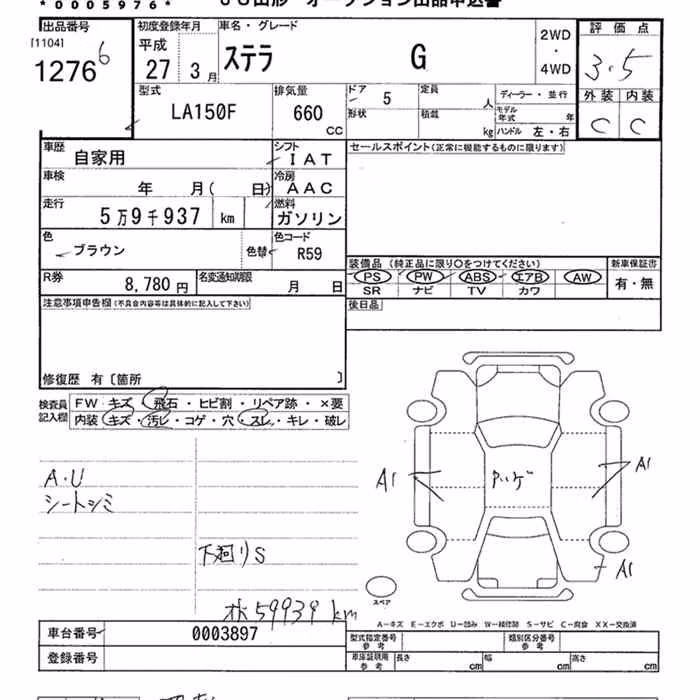 *0005976*
JU山形 オークション出品申込書
出品番号
[1104]
1276 6
初度登録年月
平成
27 3月
車名・グレード
ステラ G
2WD
・
4WD
評価点
3.5
外装 内装
C C
型式
LA150F
排気量
660
CC
ドア
5
形状
定員
人
積載
kg
ディーラー・並行
モデル年式 年
ハンドル 左・右
車歴
自家用
シフト
IAT
車検
年 月( 日)
冷房
AAC
走行
5万9千937 km
燃料
ガソリン
色
ブラウン
色替
色コード
R59
R券
8,780円
名変通知期限
月 日
セールスポイント(正常に機能するものに限ります)
装備品(純正品に限り〇をつけてください)
新車保証書
PS PW ABS エアB AW
SR ナビ TV カワ
有・無
後日品
注意事項申告欄(不具合内容等は具体的に記入して下さい)
修復歴 有〔箇所 〕
検査員記入欄
FW キズ・飛石・ヒビ割・リペア跡・×要
内装 キズ・汚レ・コゲ・穴・スレ・キレ・破レ
A・U
シートシミ
下廻りS
59939 km
A1
A1
A1
スペア
A-キズ E-エクボ U-凹み W-補修跡 S-サビ C-腐食 XX-交換済
車台番号
0003897
登録番号
型式指定番号
参考
類別区分番号
参考
車庫証明用
参考
長さ cm
幅 cm
高さ cm